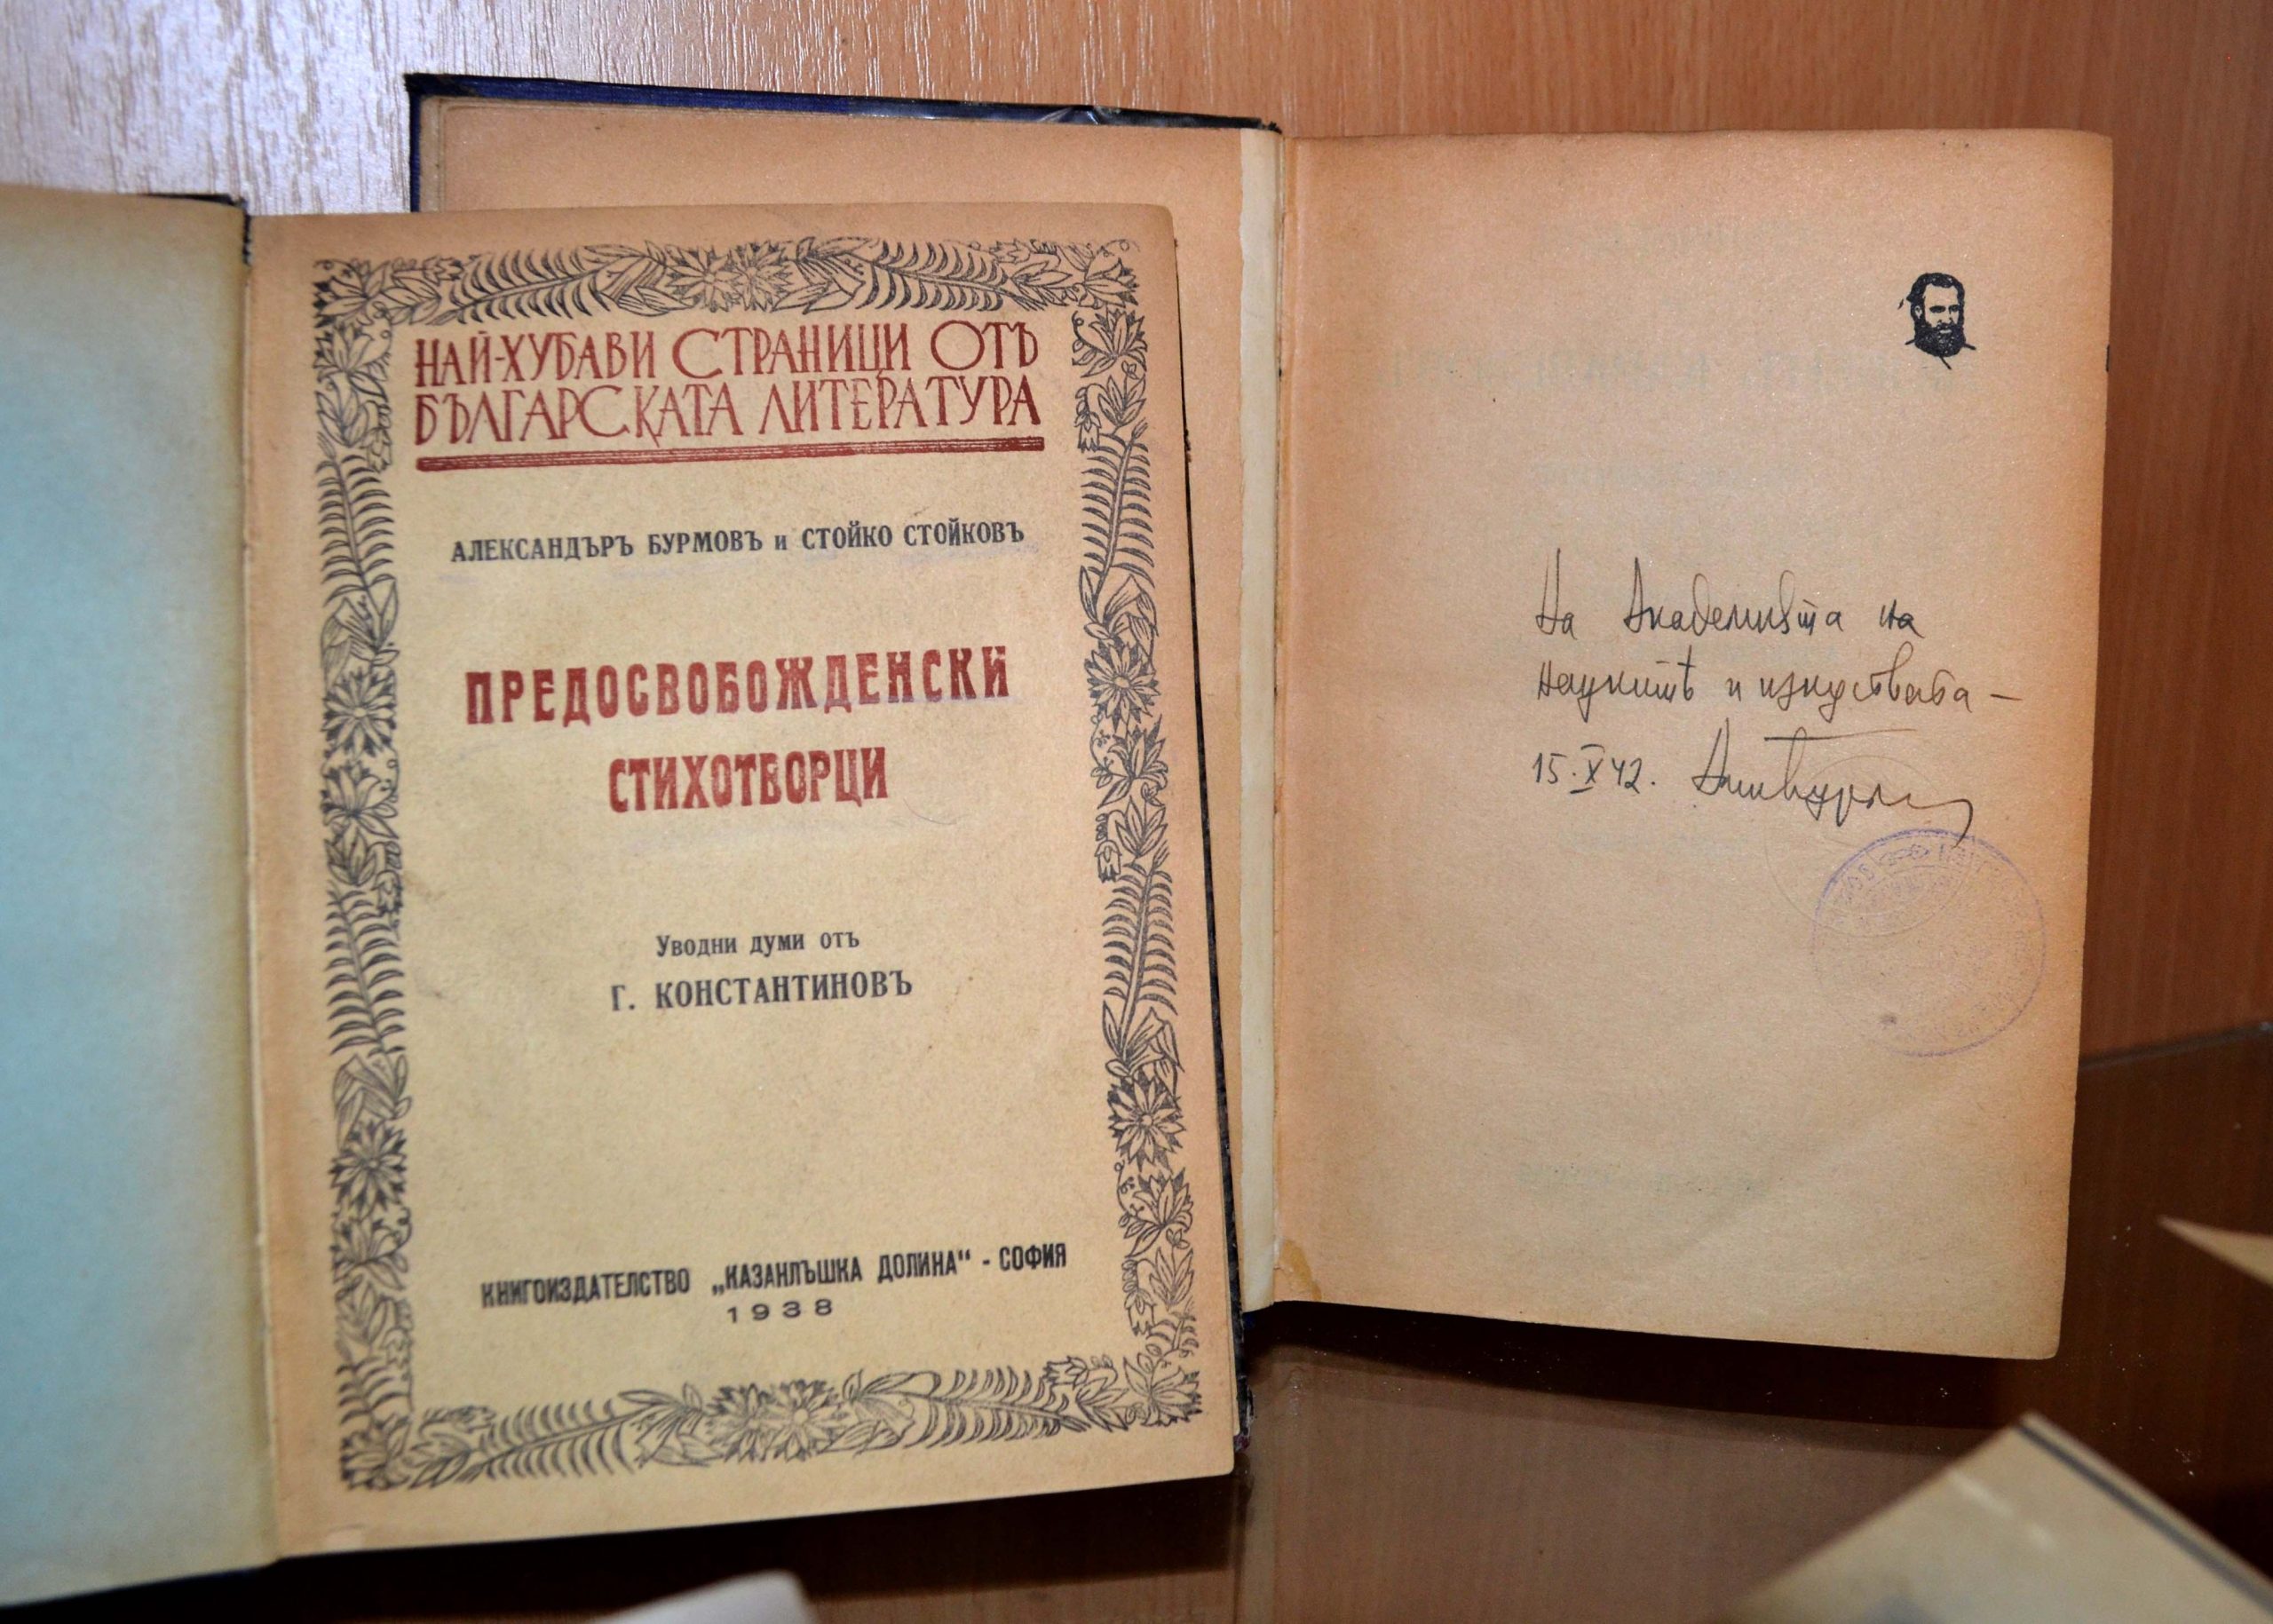 НАЙ-ХУБАВИ СТРАНИЦИ ОТЪ
БЪЛГАРСКАТА ЛИТЕРАТУРА
АЛЕКСАНДЪРЪ БУРМОВЪ и СТОЙКО СТОЙКОВЪ
ПРЕДОСВОБОЖДЕНСКИ
СТИХОТВОРЦИ
Уводни думи отъ
Г. КОНСТАНТИНОВЪ
КНИГОИЗДАТЕЛСТВО „КАЗАНЛЪШКА ДОЛИНА“ - СОФИЯ
1938
На Академията на
науките и изкуствата –
15.X 42.